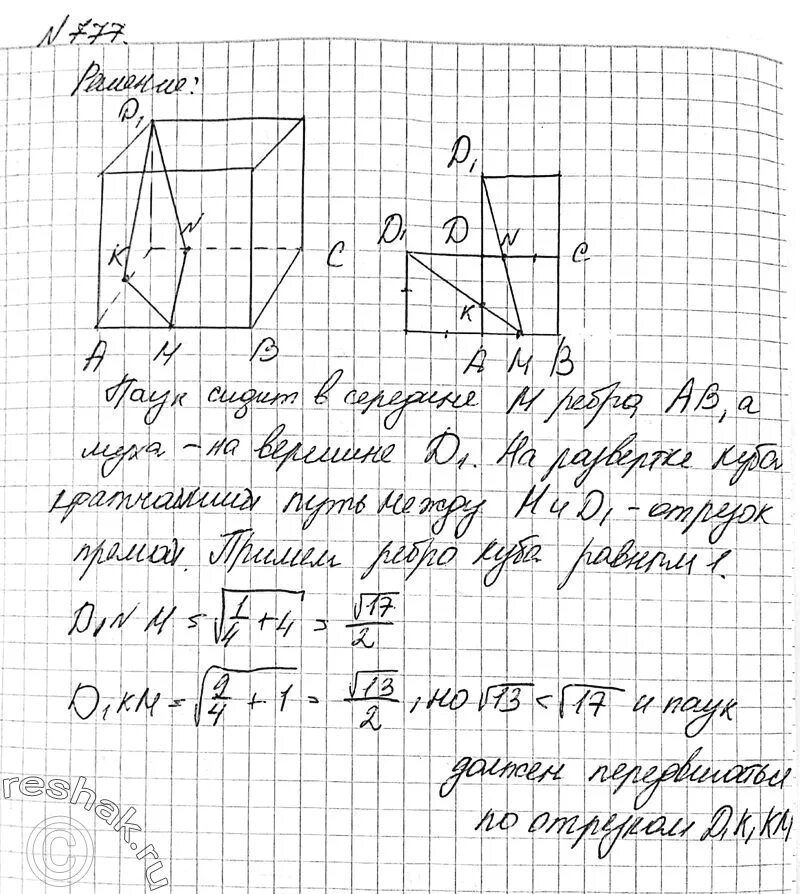 N 777.
Решение:
D₁
N
K
C
A M B
D₁
D₁ D N C
K
A M B
Паук сидит в середине M ребра AB, а
муха – на вершине D₁. На развертке куба
кратчайший путь между M и D₁ – отрезок
прямой. Примем ребро куба равным 1.
D₁NM = √(1/4 + 4) = √17/2
D₁KM = √(9/4 + 1) = √13/2, но √13 < √17 и паук
должен передвигаться
по отрезкам D₁K, KM
reshak.ru
©